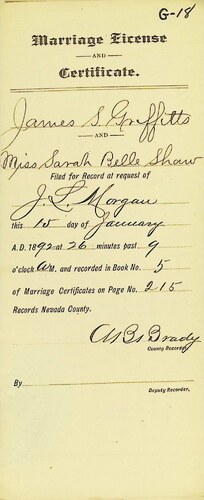 G-18
Marriage License
AND
Certificate.
James S. Griffitts
AND
Miss Sarah Belle Shaw
Filed for Record at request of
J. L. Morgan
this 15 day of January
A.D. 1892 at 26 minutes past 9
o'clock A M. and recorded in Book No. 5
of Marriage Certificates on Page No. 215
Records Nevada County.
Brady
County Recorder.
By
Deputy Recorder.